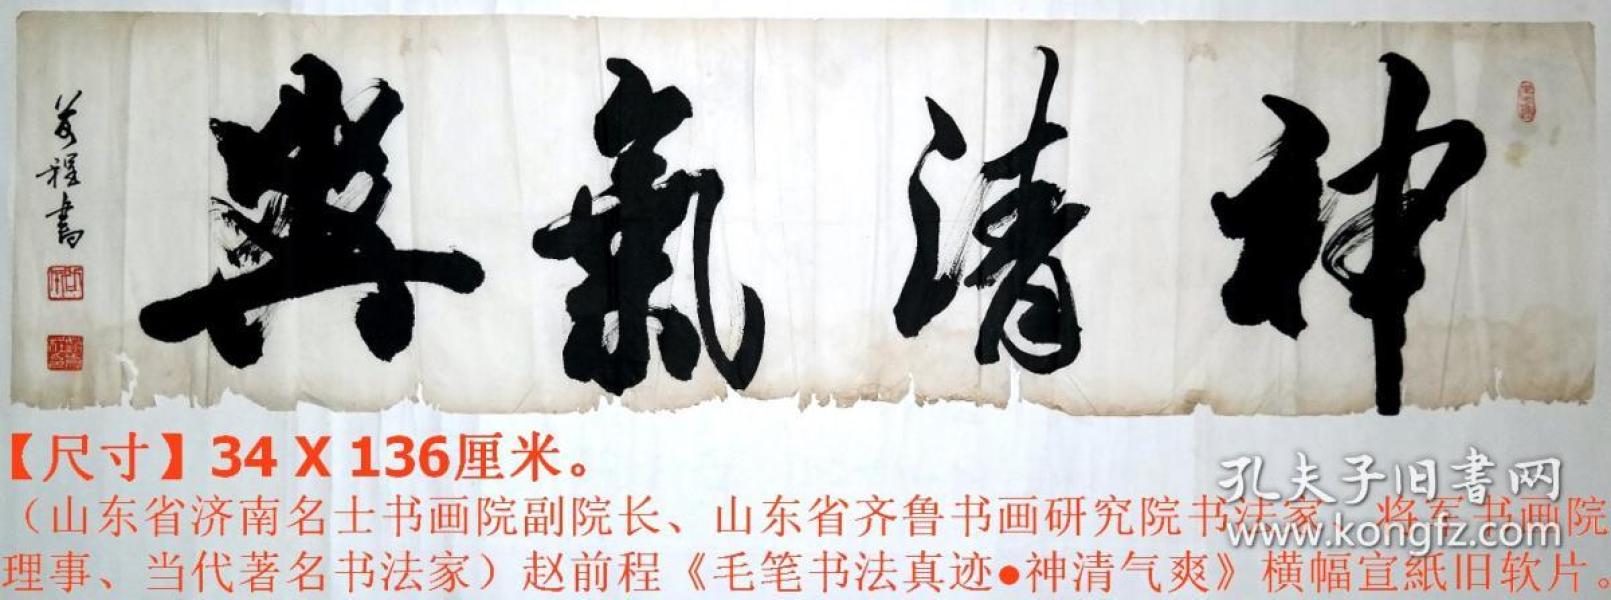 神清氣爽
前程書
【尺寸】34 X 136厘米。
（山东省济南名士书画院副院长、山东省齐鲁书画研究院书法家、将军书画院
理事、当代著名书法家）赵前程《毛笔书法真迹●神清气爽》横幅宣紙旧软片。
孔夫子旧書网
www.kongfz.com